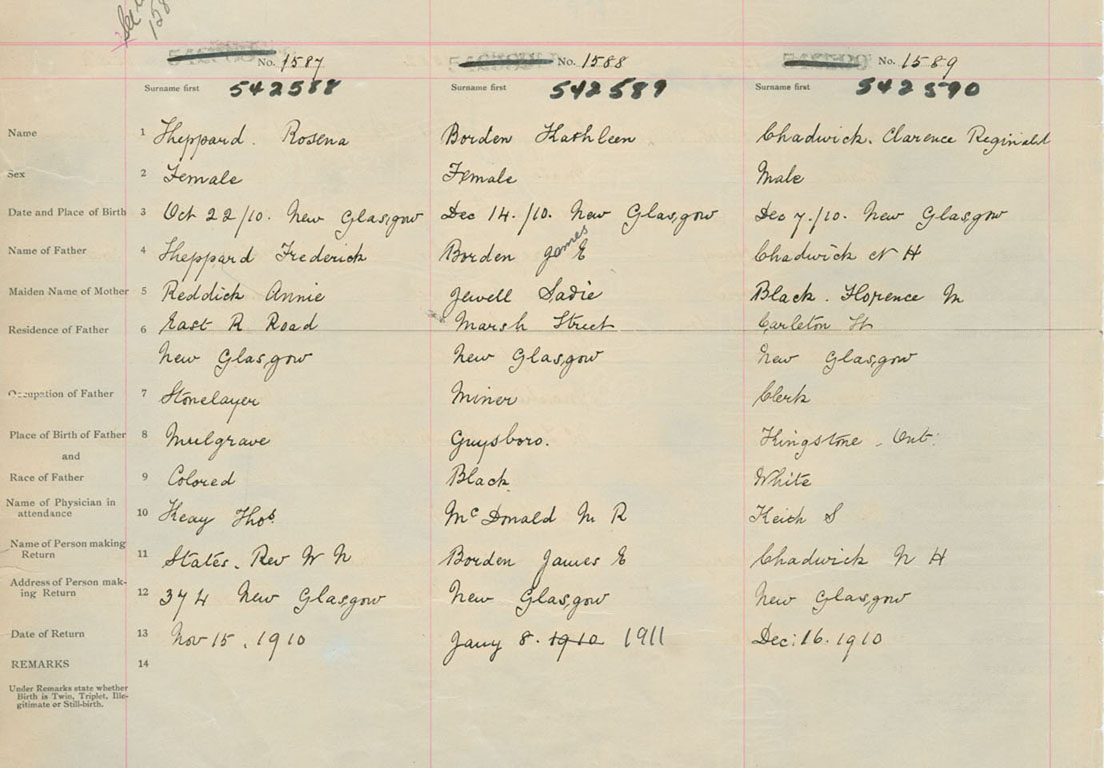 No. 1587 No. 1588 No. 1589
Surname first 542588 Surname first 542589 Surname first 542590
Name 1 Sheppard. Rosena Borden Kathleen Chadwick. Clarence Reginald
Sex 2 Female Female Male
Date and Place of Birth 3 Oct 22/10. New Glasgow Dec 14./10. New Glasgow Dec 7./10. New Glasgow
Name of Father 4 Sheppard Frederick Borden James E Chadwick N H
Maiden Name of Mother 5 Reddick Annie Jewell Sadie Black. Florence M
Residence of Father 6 East R Road Marsh Street Carleton St
New Glasgow New Glasgow New Glasgow
Occupation of Father 7 Stonelayer Miner Clerk
Place of Birth of Father 8 Mulgrave Guysboro. Kingstone. Ont.
and
Race of Father 9 Colored Black White
Name of Physician in
attendance 10 Keay Thos. McDonald M R Keith S
Name of Person making
Return 11 States. Rev W N Borden James E Chadwick N H
Address of Person mak-
ing Return 12 374 New Glasgow New Glasgow New Glasgow
Date of Return 13 Nov 15, 1910 Jany 8. 1910 1911 Dec: 16. 1910
REMARKS 14
Under Remarks state whether
Birth is Twin, Triplet, Ille-
gitimate or Still-birth.